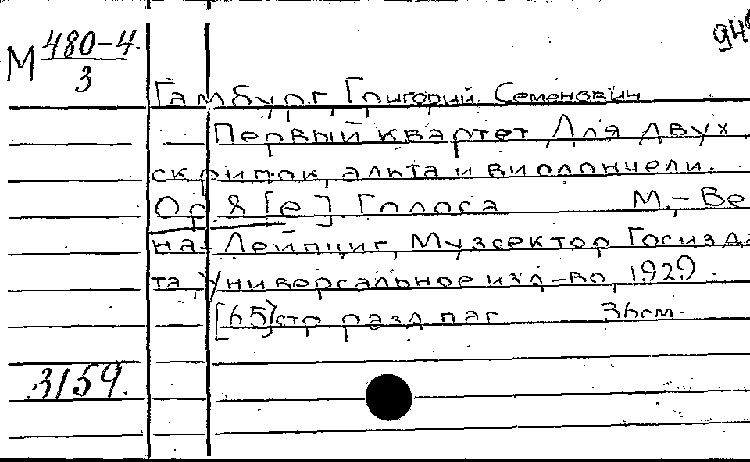 М 480-4
3
94
Гамбург, Григорий Семенович
Первый квартет Для двух
скрипок, альта и виолончели.
Ор 8 [е]. Голоса М.,- Ве
на- Лейпциг, Музсектор Госизда
та, Универсальное изд-во, 1929.
[65] стр разд паг 36см.
3159.